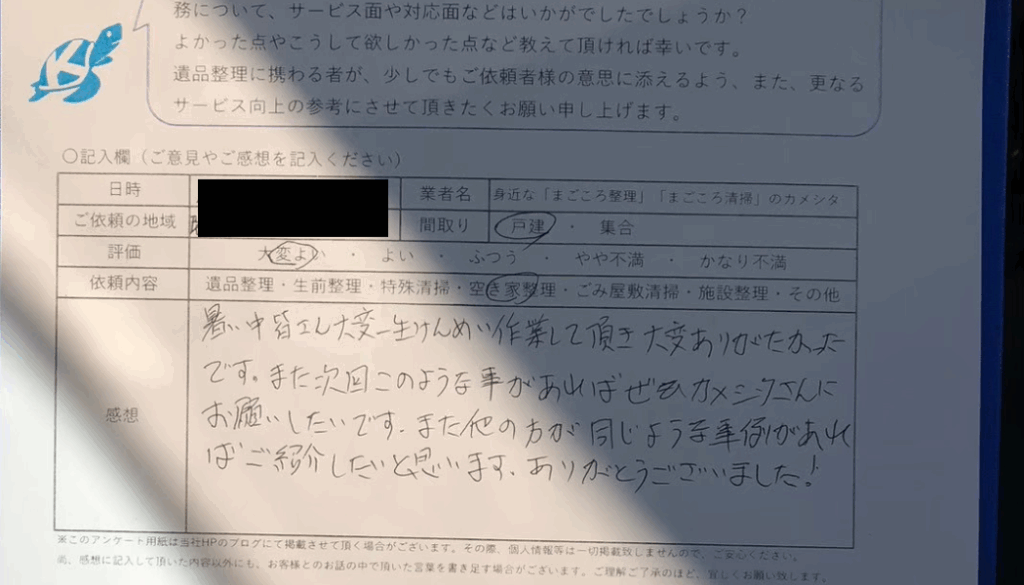 務について、サービス面や対応面などはいかがでしたでしょうか？
よかった点やこうして欲しかった点など教えて頂ければ幸いです。
遺品整理に携わる者が、少しでもご依頼者様の意思に添えるよう、また、更なる
サービス向上の参考にさせて頂きたくお願い申し上げます。
〇記入欄（ご意見やご感想を記入ください）
日時 業者名 身近な「まごころ整理」「まごころ清掃」のカメシタ
ご依頼の地域 間取り 戸建 ・ 集合
評価 大変よい ・ よい ・ ふつう ・ やや不満 ・ かなり不満
依頼内容 遺品整理・生前整理・特殊清掃・空き家整理・ごみ屋敷清掃・施設整理・その他
感想
暑い中皆さん大変一生けんめい作業して頂き大変ありがたかった
です。また次回このような事があればぜひカメシタさんに
お願いしたいです、また他の方が同じような事例があれ
ばご紹介したいと思います、ありがとうございました！
※このアンケート用紙は当社HPのブログにて掲載させて頂く場合がございます。その際、個人情報等は一切掲載致しませんので、ご安心ください。
尚、感想に記入して頂いた内容以外にも、お客様とのお話の中で頂いた言葉を書き足す場合がございます。ご理解ご了承のほど、宜しくお願い致します。